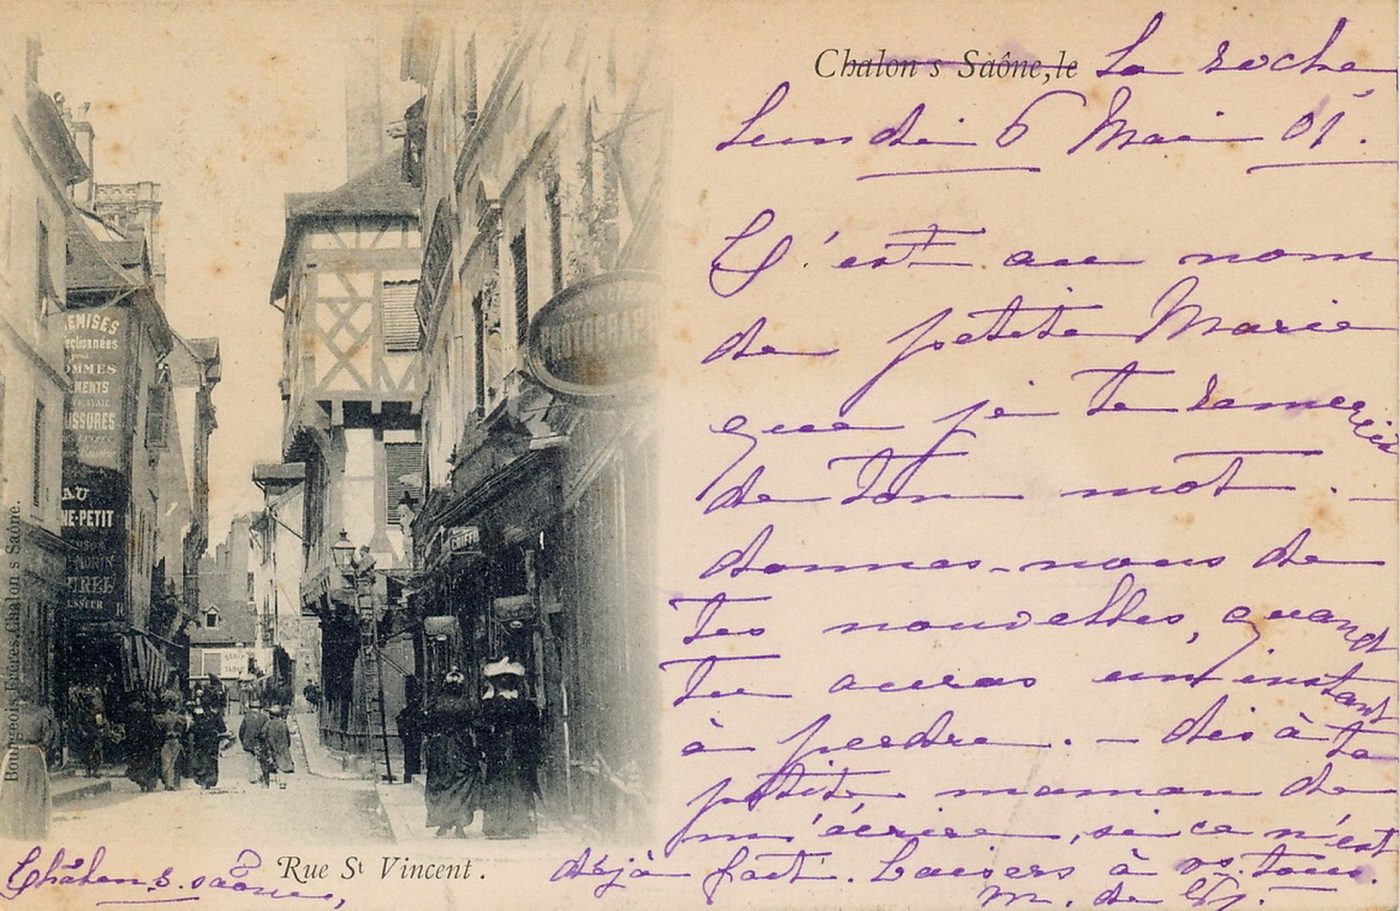 Chalon s Saône, le La roche,
Lundi 6 Mai 01.
C'est au nom
de petite Marie
que je te remercie
de ton mot. —
donnes-nous de
tes nouvelles, quand
tu auras un instant
à perdre. — dis à ta
petite maman de
m'écrire, si ce n'est
déjà fait. Baisers à vs. tous.
M. de
Rue St Vincent.
Châlon s. saône,
Bourgeois Frères, Chalon s Saône.
REMISES
ectionnées
pour
OMMES
MENTS
USSURES
AU
NE-PETIT
PHOTOGRAPH